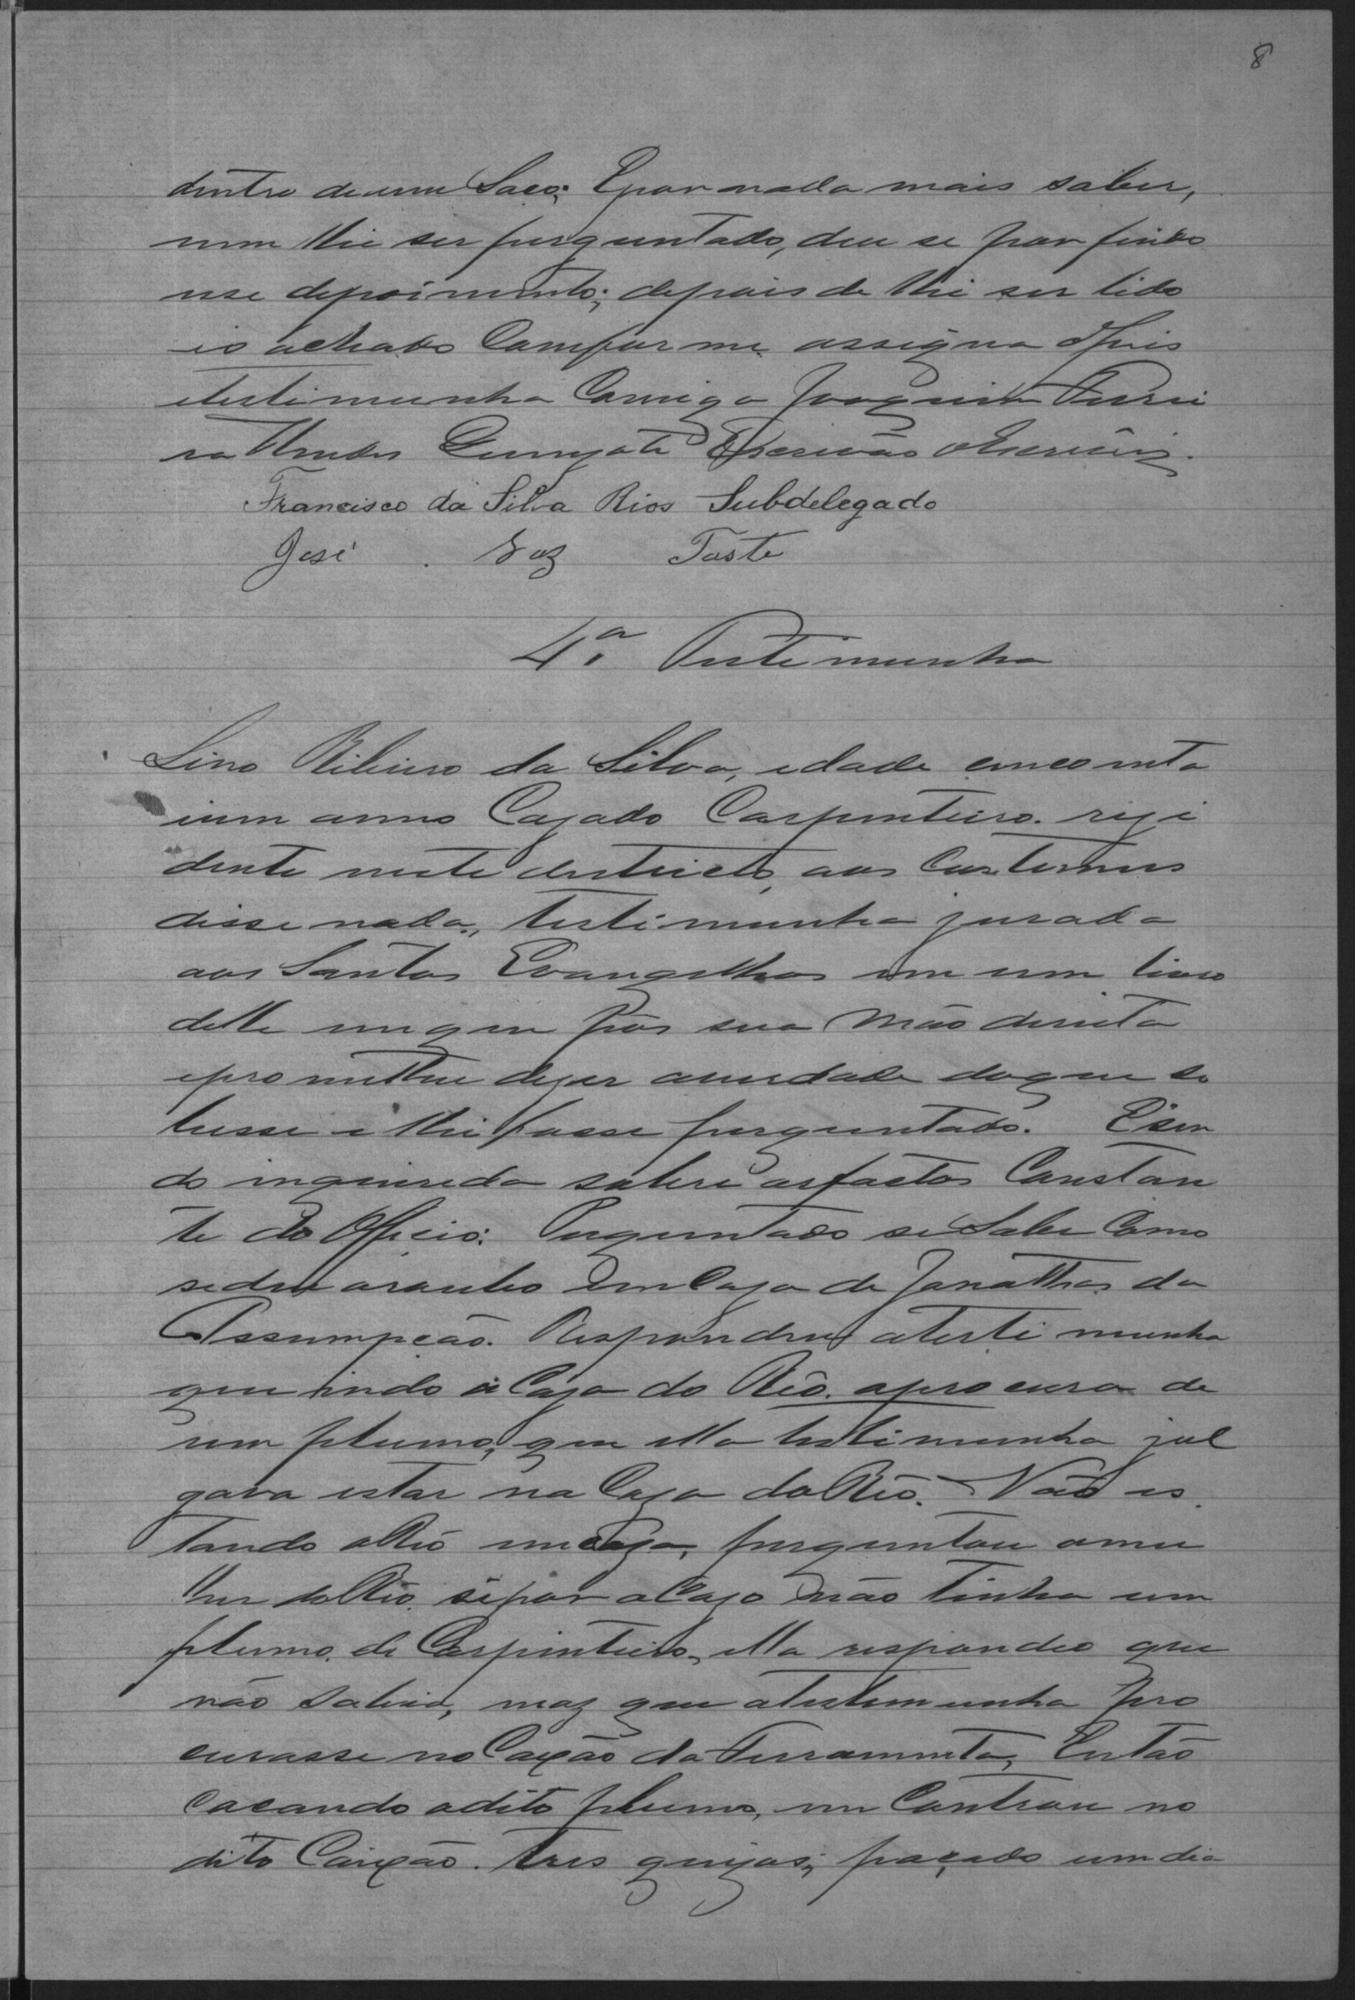 8
dentro de um Saco; E por nada mais saber,
nem lhe ser perguntado, deu se por findo
esse depoimento; depois de lhe ser lido
e o achado Comforme assigna o Juis
e testimunha Comigo Joaquim Ferrei
ra Escrivão o Escrivi.
Francisco da Silva Rios Subdelegado
José Vaz Toste
4.ª Testimunha
Lino Ribeiro da Silva, edade cincoenta
e um anno Cazado Carpenteiro. rezi
dente neste destricto, aos Custumes
disse nada., testimunha jurada
aos Santos Evangelhos em um livro
delle em que pôs sua Mão direita
e prometteu dizer a verdade do que so
besse e lhe fosse perguntado. E sen
do inquerida sobre os factos Constan
te do Officio: Perguntado se Sabe Como
se deu o roubo em Caza de Jonathas da
Assumpção. Respondeu a testi munha
que indo á Caza do Réo. a procura de
um plumo, que ella testimunha jul
gava estar na Caza do Réo. Não es
tando o Réo em Caza, perguntou a mu
lher do Réo. se por a Cazo não tinha um
plumo. de Carpinteiro, ella respondeo que
não sabia, maz que a testemunha pro
curasse no Caixão da Ferramenta, Então
cacando o dito plumo, en Controu no
dito Caixão. tres queijos; paçado um dia